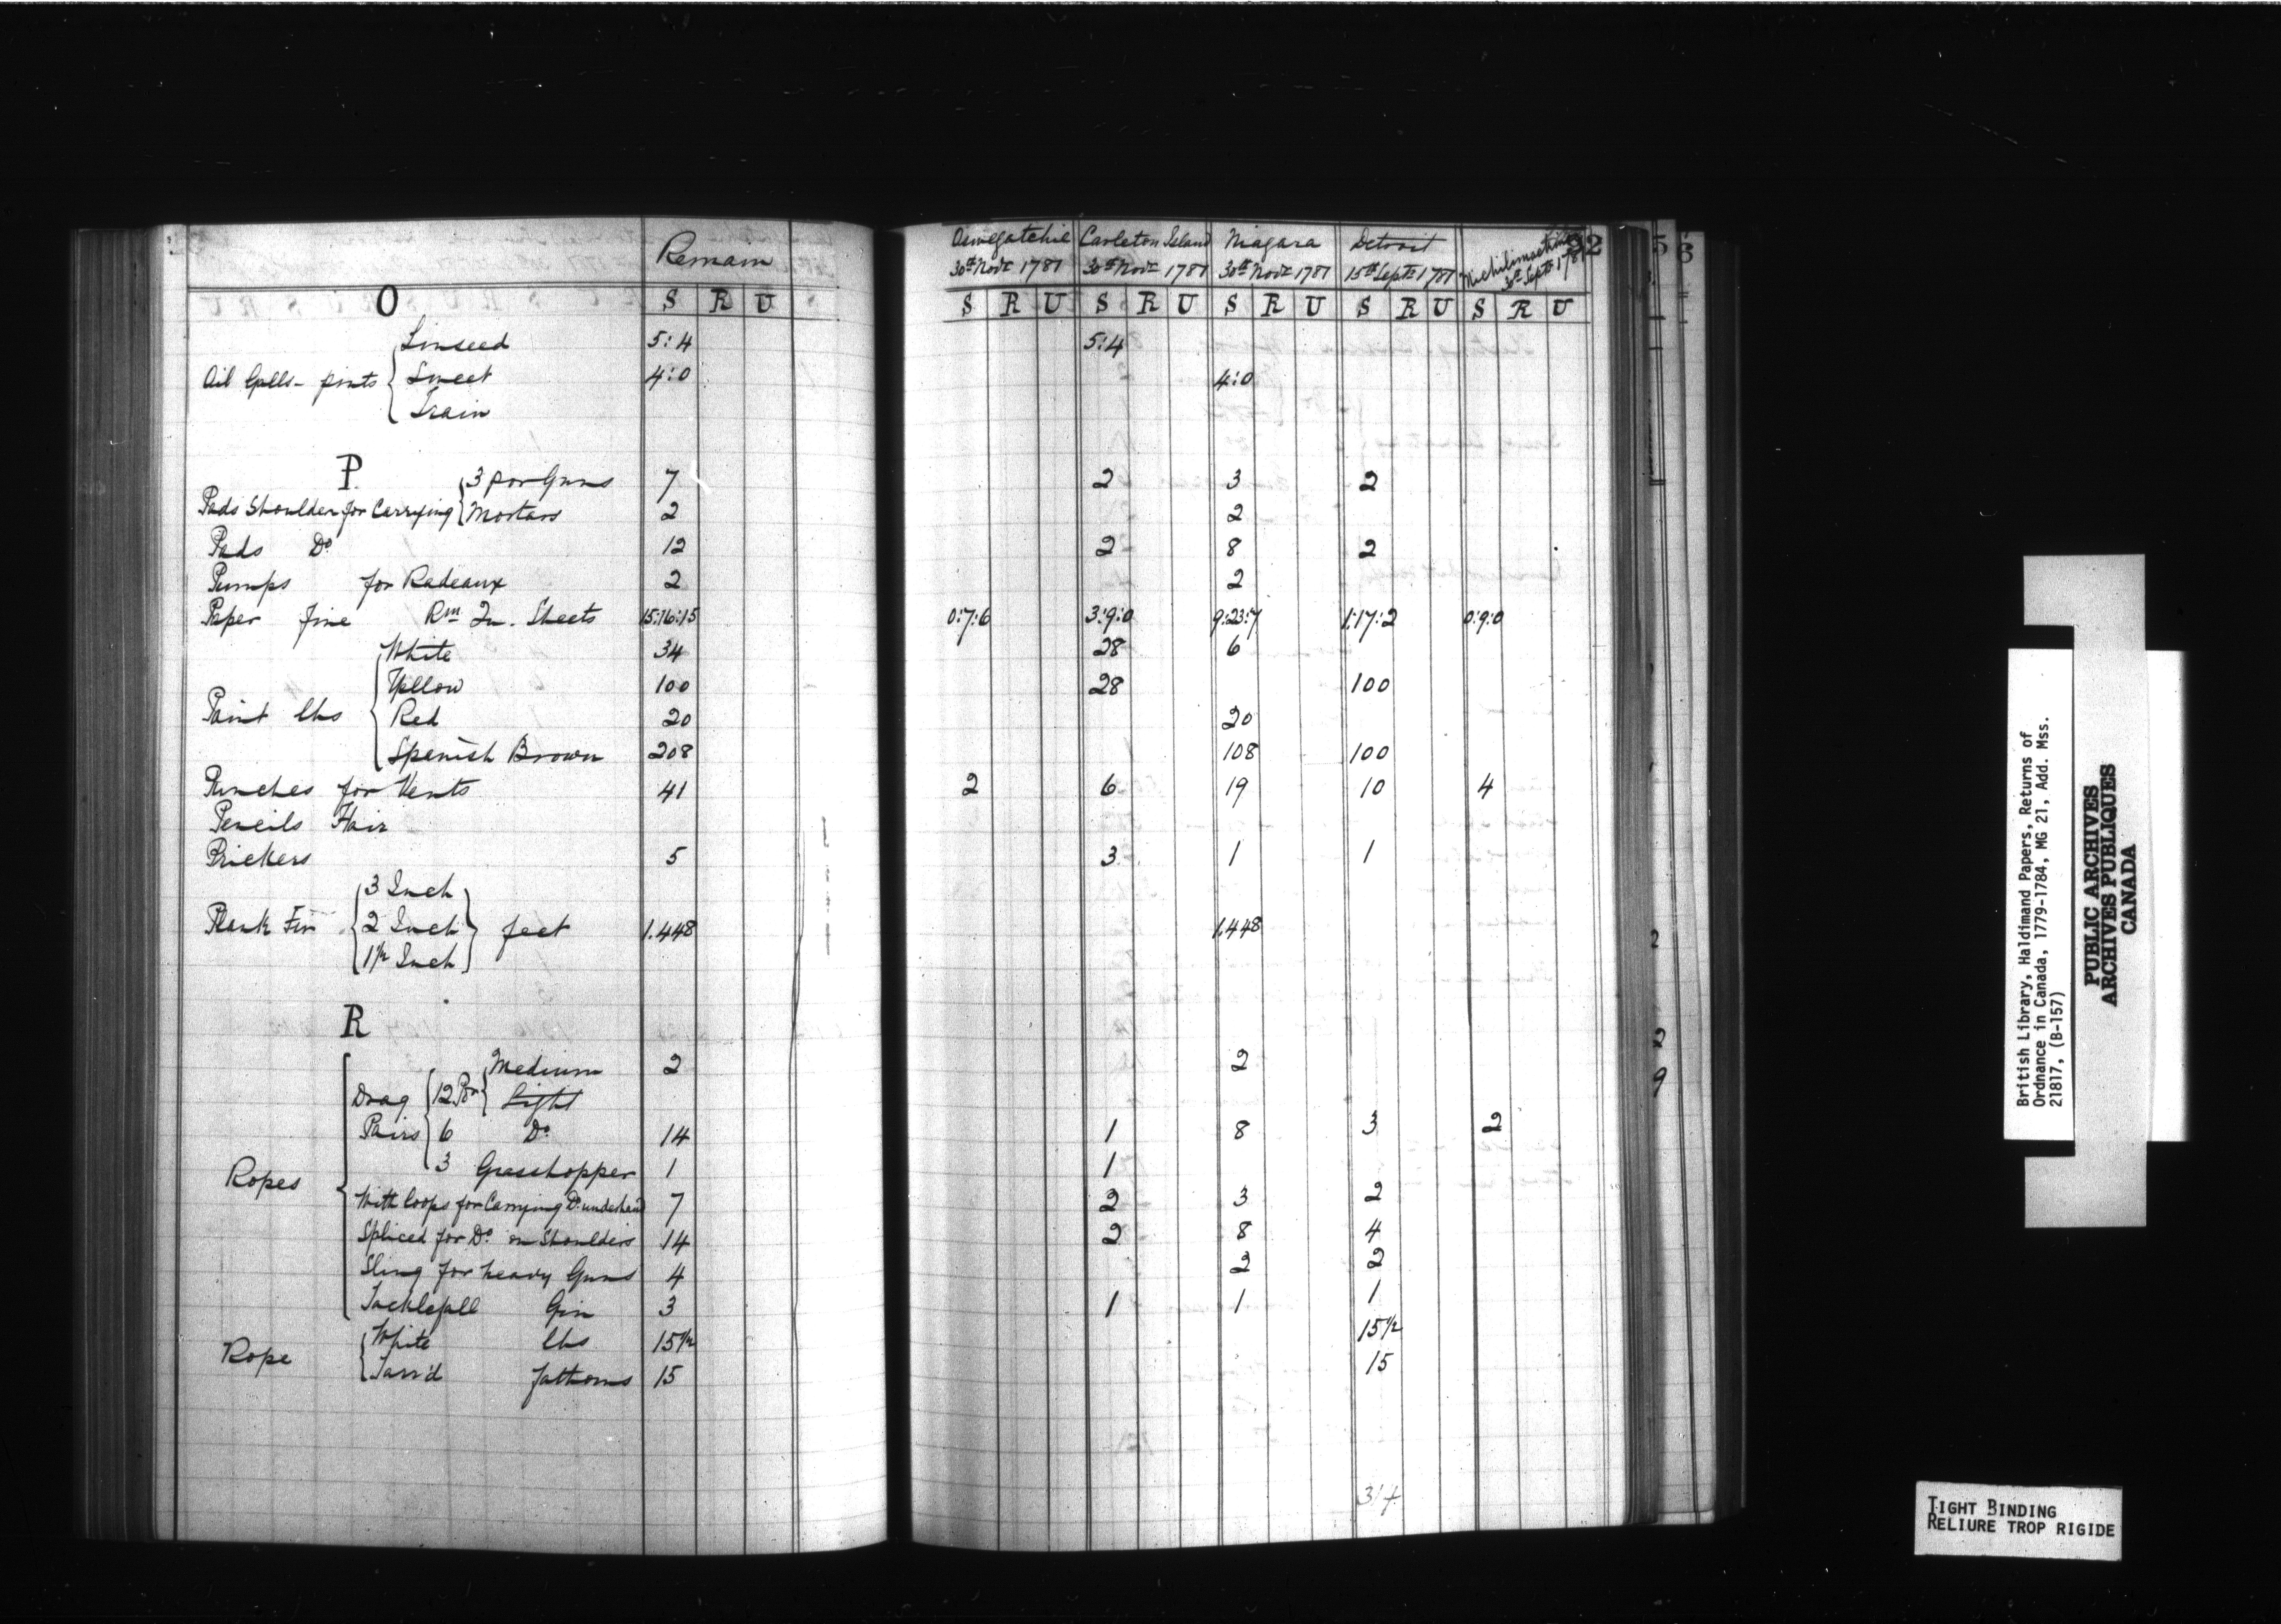 Remain
O S R U
Linseed 5:4
Oil Galls - pints Sweet 4:0
Train
P
3 por Guns 7
Pads Shoulder for Carrying Mortars 2
Pads Do 12
Pumps for Radeaux 2
Paper fine Rm Qu. Sheets 15:16:15
White 34
Yellow 100
Paint lbs Red 20
Spanish Brown 208
Punches for Vents 41
Pencils Hair
Prickers 5
3 Inch
Plank Fir 2 Inch feet 1.448
1½ Inch
R
Medium 2
Drag 12 Por Light
Pairs 6 Do 14
3 Grasshopper 1
Ropes
With loops for Carrying Do underhand 7
Spliced for Do on Shoulders 14
Sling for heavy Guns 4
Tacklefall Gin 3
White lbs 15½
Rope
Tarr'd fathoms 15
Oswegatchie Carleton Island Niagara Detroit Michilimackinac 92
30th Novr 1781 30th Novr 1781 30th Novr 1781 15th Septr 1781 30th Septr 1781
S R U S R U S R U S R U S R U
5:4
4:0
2 3 2
2
2 8 2
2
0:7:6 3:9:0 9:23:7 1:17:2 0:9:0
28 6
28 100
20
108 100
2 6 19 10 4
3 1 1
1.448
2
1 8 3 2
1
2 3 2
2 8 4
2 2
1 1 1
15½
15
5
6
2
2
9
British Library, Haldimand Papers, Returns of
Ordnance in Canada, 1779-1784, MG 21, Add. Mss.
21817, (B-157)
PUBLIC ARCHIVES
ARCHIVES PUBLIQUES
CANADA
TIGHT BINDING
RELIURE TROP RIGIDE